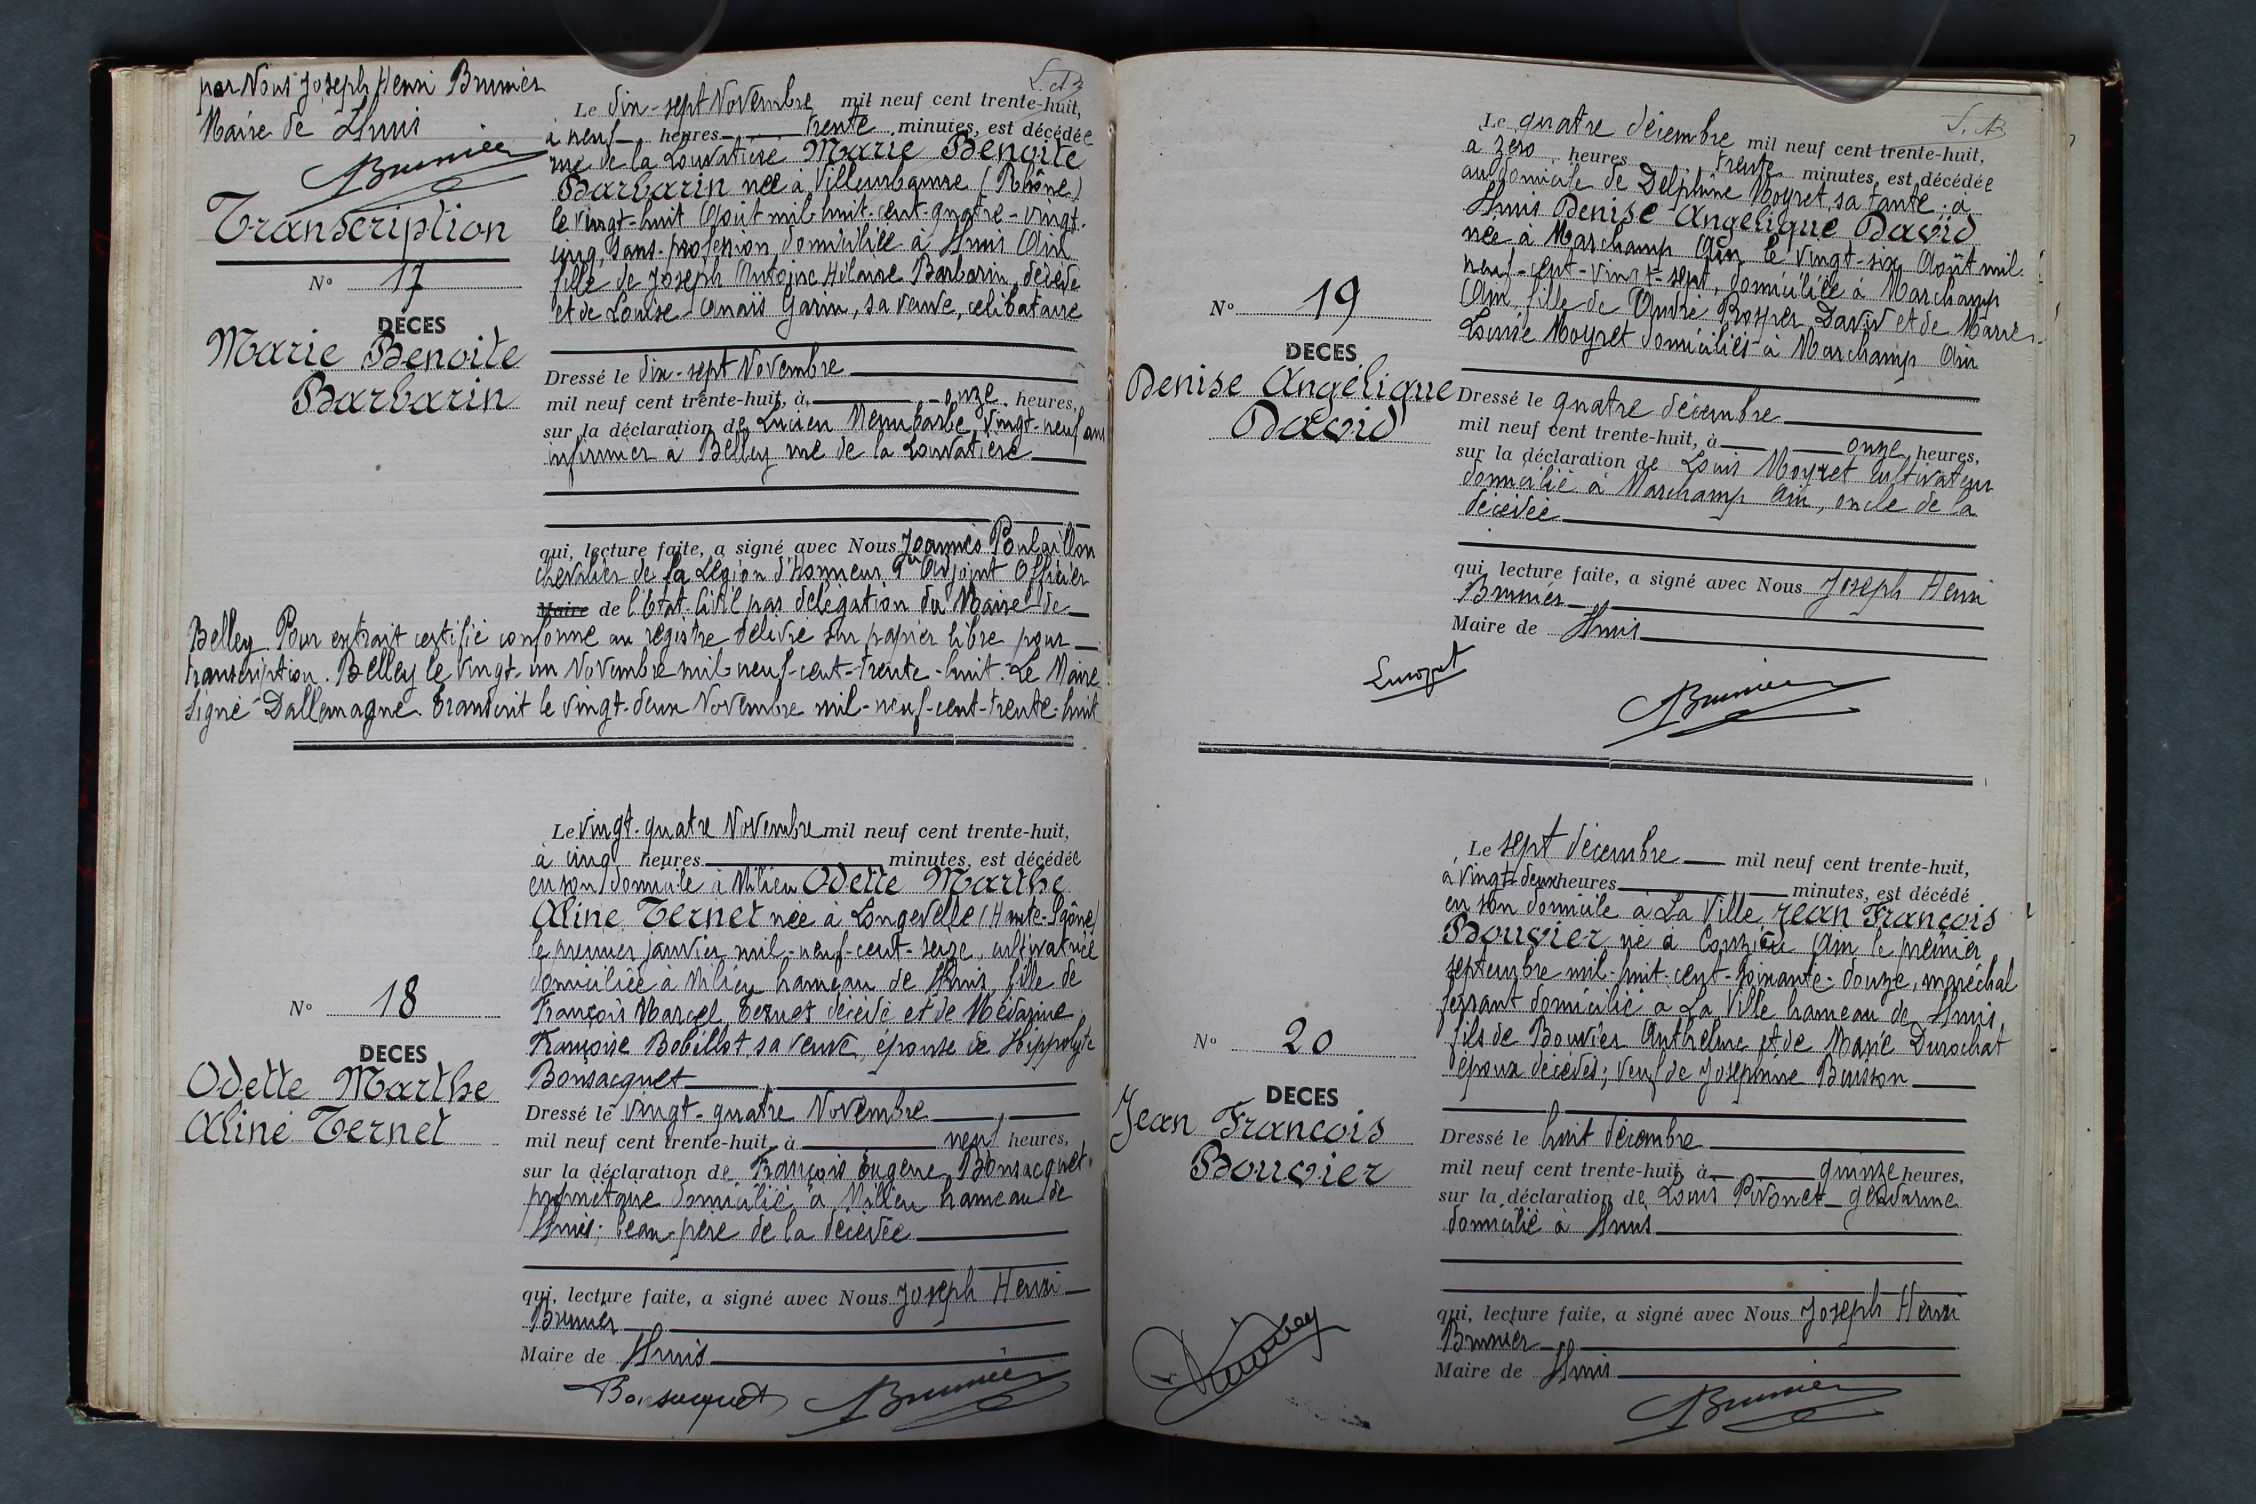 par Nous Joseph Henri Brunier
Maire de Lhuis
Brunier
Transcription
N° 17
DECES
Marie Benoite
Barbarin
Le dix-sept Novembre mil neuf cent trente-huit,
à neuf heures trente minutes, est décédée
rue de la Louvatière Marie Benoite
Barbarin née à Villeurbanne (Rhône)
le vingt-huit Août mil huit-cent-quatre-vingt-
cinq, sans profession domiciliée à Lhuis Ain
fille de Joseph Antoine Hilaire Barbarin, décédé
et de Louise Anaïs Garin, sa veuve, célibataire
Dressé le dix-sept Novembre
mil neuf cent trente-huit, à onze heures,
sur la déclaration de Lucien Nemubarbe, vingt-neuf ans
infirmier à Belley rue de la Louvatière
qui, lecture faite, a signé avec Nous Joannès Poulaillon
chevalier de la Légion d'Honneur 1er Adjoint Officier
Maire de l'Etat-Civil par délégation du Maire de
Belley. Pour extrait certifié conforme au registre délivré sur papier libre pour
transcription. Belley le vingt-un Novembre mil-neuf-cent-trente-huit. Le Maire
signé Dallemagne. Transcrit le vingt-deux Novembre mil-neuf-cent-trente-huit
N° 18
DECES
Odette Marthe
Aline Ternet
Le vingt-quatre Novembre mil neuf cent trente-huit,
à cinq heures minutes, est décédée
en son domicile à Milieu Odette Marthe
Aline Ternet née à Longevelle (Haute-Saône)
le premier janvier mil-neuf-cent-seize, cultivatrice
domiciliée à Milieu hameau de Lhuis, fille de
François Marcel Ternet décédé et de Médarine
Françoise Bobillot, sa veuve, épouse de Hippolyte
Bonsacquet
Dressé le vingt-quatre Novembre
mil neuf cent trente-huit, à neuf heures,
sur la déclaration de François Eugène Bonsacquet
propriétaire domicilié à Milieu hameau de
Lhuis; beau-père de la décédée
qui, lecture faite, a signé avec Nous Joseph Henri
Brunier
Maire de Lhuis
Bonsacquet Brunier
N° 19
DECES
Denise Angélique
David
Le quatre décembre mil neuf cent trente-huit,
à zéro heures trente minutes, est décédée
au domicile de Delphine Moyret, sa tante, à
Lhuis Denise Angélique David
née à Marchamp Ain le vingt-six Août mil
neuf-cent-vingt-sept, domiciliée à Marchamp
Ain, fille de André Prosper David et de Marie
Louise Moyret domiciliés à Marchamp Ain
Dressé le quatre décembre
mil neuf cent trente-huit, à onze heures,
sur la déclaration de Louis Moyret cultivateur
domicilié à Marchamp Ain, oncle de la
décédée
qui, lecture faite, a signé avec Nous Joseph Henri
Brunier
Maire de Lhuis
Brunier
N° 20
DECES
Jean François
Bouvier
Le sept décembre mil neuf cent trente-huit,
à vingt-deux heures minutes, est décédé
en son domicile à La Ville, Jean François
Bouvier né à Conzieu Ain le premier
septembre mil-huit-cent-soixante-douze, maréchal
ferrant domicilié à La Ville hameau de Lhuis,
fils de Bouvier Anthelme et de Marie Durochat
époux décédés; veuf de Joséphine Buisson
Dressé le huit décembre
mil neuf cent trente-huit, à quinze heures,
sur la déclaration de Louis Pivonet gendarme
domicilié à Lhuis
qui, lecture faite, a signé avec Nous Joseph Henri
Brunier
Maire de Lhuis
Brunier